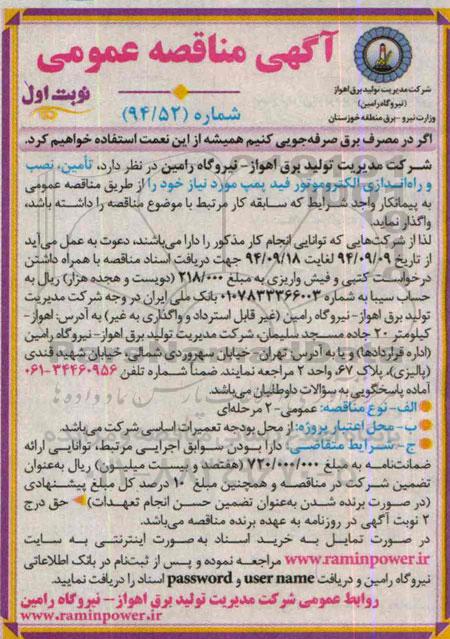 آگهی مناقصه عمومی
شرکت مدیریت تولید برق اهواز
(نیروگاه رامین)
وزارت نیرو - برق منطقه خوزستان
نوبت اول
شماره (۹۴/۵۲)
اگر در مصرف برق صرفه‌جویی کنیم همیشه از این نعمت استفاده خواهیم کرد.
شرکت مدیریت تولید برق اهواز- نیروگاه رامین در نظر دارد، تأمین، نصب
و راه‌اندازی الکتروموتور فید پمپ مورد نیاز خود را از طریق مناقصه عمومی
به پیمانکار واجد شرایط که سابقه کار مرتبط با موضوع مناقصه را داشته باشد،
واگذار نماید.
لذا از شرکت‌هایی که توانایی انجام کار مذکور را دارا می‌باشند، دعوت به عمل می‌آید
از تاریخ ۹۴/۰۹/۰۹ لغایت ۹۴/۰۹/۱۸ جهت دریافت اسناد مناقصه با همراه داشتن
درخواست کتبی و فیش واریزی به مبلغ ۲۱۸/۰۰۰ (دویست و هجده هزار) ریال به
حساب سیبا به شماره ۰۱۰۷۸۳۳۳۶۶۰۰۳ بانک ملی ایران در وجه شرکت مدیریت
تولید برق اهواز- نیروگاه رامین (غیر قابل استرداد و واگذاری به غیر) به آدرس: اهواز-
کیلومتر ۲۰ جاده مسجد سلیمان، شرکت مدیریت تولید برق اهواز- نیروگاه رامین
(اداره قراردادها) و یا به آدرس: تهران- خیابان سهروردی شمالی- خیابان شهید قندی
(پالیزی)، پلاک ۶۷، واحد ۲ مراجعه نمایند. ضمناً شماره تلفن ۳۴۴۶۰۹۵۶-۰۶۱
آماده پاسخگویی به سؤالات داوطلبان می‌باشد.
الف- نوع مناقصه: عمومی- ۲ مرحله‌ای
ب- محل اعتبار پروژه: از محل بودجه تعمیرات اساسی شرکت می‌باشد.
ج- شرایط متقاضی: دارا بودن سوابق اجرایی مرتبط، توانایی ارائه
ضمانت‌نامه به مبلغ ۷۲۰/۰۰۰/۰۰۰ (هفتصد و بیست میلیون) ریال به‌عنوان
تضمین شرکت در مناقصه و همچنین مبلغ ۱۰ درصد کل مبلغ پیشنهادی
(در صورت برنده شدن به‌عنوان تضمین حسن انجام تعهدات) حق درج
۲ نوبت آگهی در روزنامه به عهده برنده مناقصه می‌باشد.
در صورت تمایل به خرید اسناد به صورت اینترنتی به سایت
www.raminpower.ir مراجعه نموده و پس از ثبت‌نام در بانک اطلاعاتی
نیروگاه رامین و دریافت user name و password اسناد را دریافت نمایید.
روابط عمومی شرکت مدیریت تولید برق اهواز- نیروگاه رامین
www.raminpower.ir